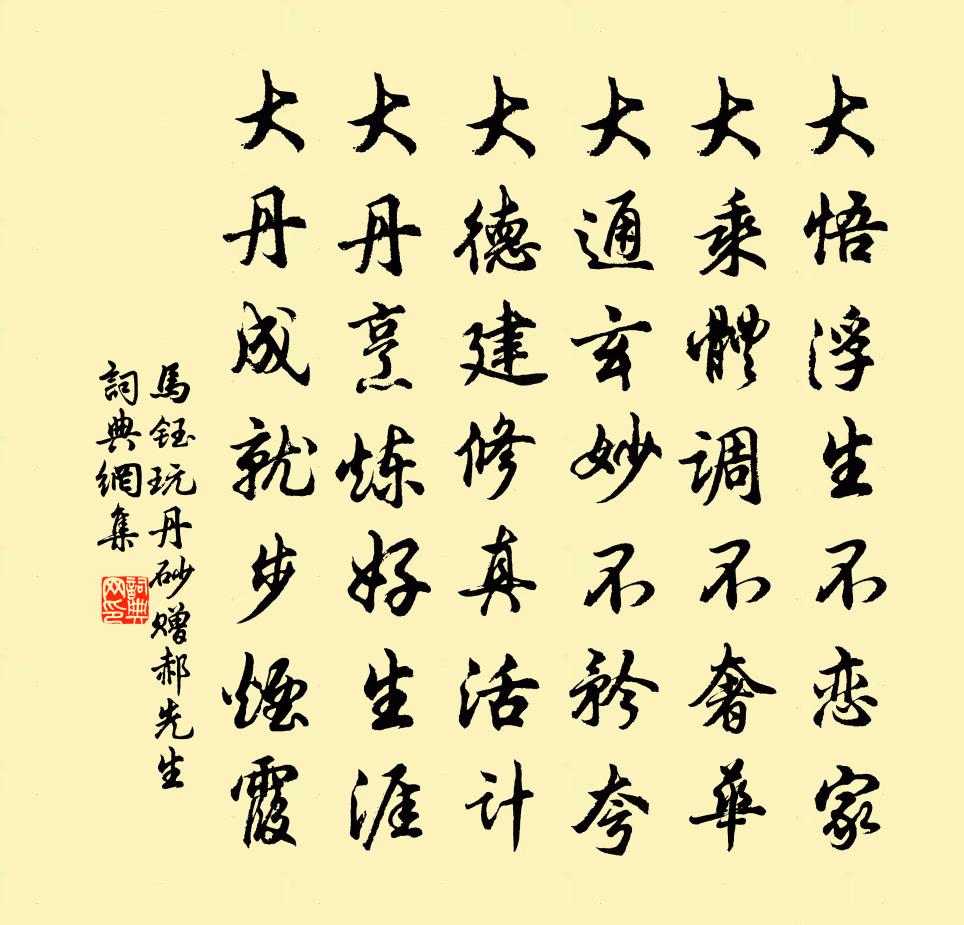 大悟浮生不恋家
大乘體调不奢華
大通玄妙不矜夸
大德建修真活计
大丹烹炼好生涯
大丹成就步煙霞
馬鈺玩丹砂赠郝先生
詞典網集
詞典网印